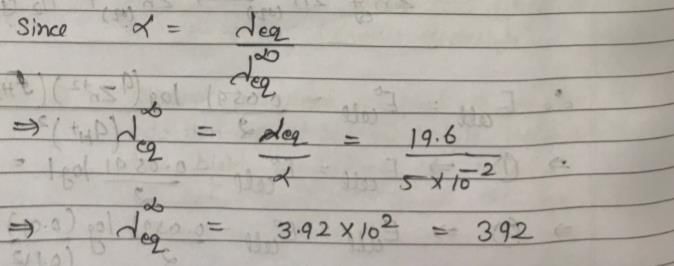 Since α = λeq / λ∞eq
⇒ λ∞eq = λeq / α = 19.6 / 5 × 10⁻²
⇒ λ∞eq = 3.92 × 10² = 392